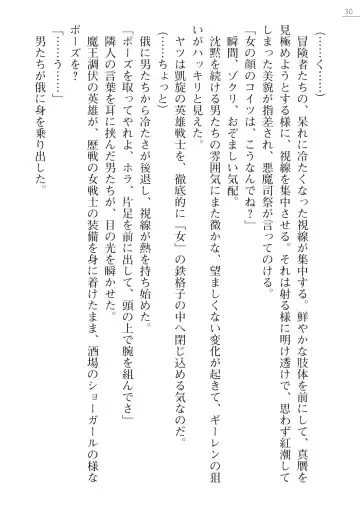 30
(……く……)
冒険者たちの、呆れに冷たくなった視線が集中する。鮮やかな肢体を前にして、真贋を
見極めようとする様に、視線を集中させる。それは射る様に明け透けで、思わず紅潮して
しまった美貌が指差され、悪魔司祭が言ってのける。
「女の顔のコイツは、こうなんでね?」
瞬間、ゾクリ、おぞましい気配。
沈黙を続ける男たちの雰囲気にまた微かな、望ましくない変化が起きて、ギーレンの狙
いがハッキリと見えた。
ヤツは凱旋の英雄戦士を、徹底的に「女」の鉄格子の中へ閉じ込める気なのだ。
(……ちょっと)
俄に男たちから冷たさが後退し、視線が熱を持ち始めた。
「ポーズを取ってやれよ、ホラ、片足を前に出して、頭の上で腕を組んでさ」
隣人の言葉を耳に挟んだ男たちが、目の光を瞬かせた。
魔王調伏の英雄が、歴戦の女戦士の装備を身に着けたまま、酒場のショーガールの様な
ポーズを?
「……う……」
男たちが俄に身を乗り出した。